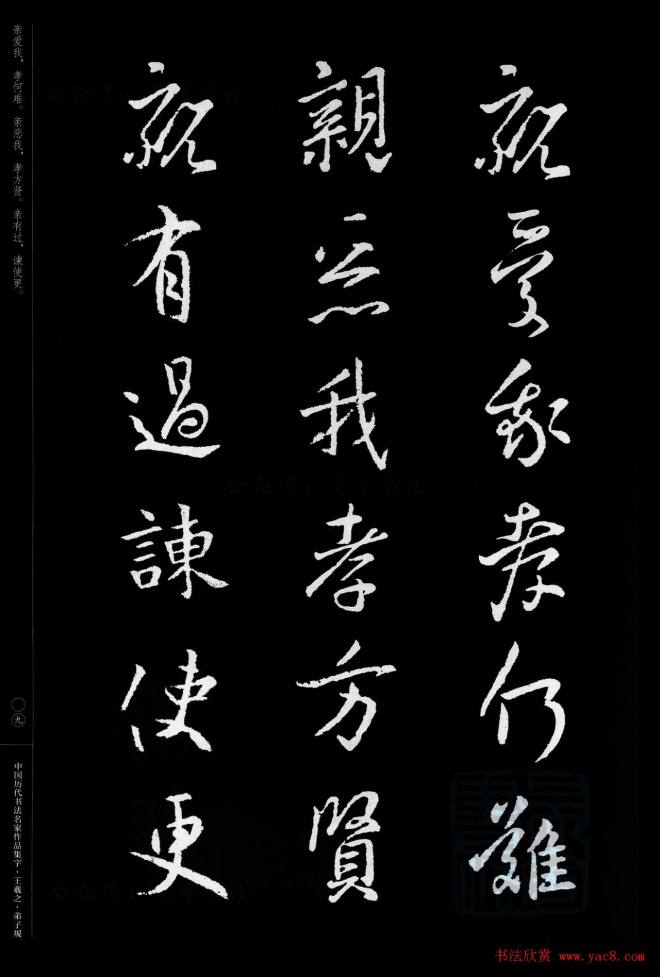 親愛我孝何難
親惡我孝方賢
親有過諫使更
亲爱我，孝何难。亲恶我，孝方贤。亲有过，谏使更。
〇九
中国历代书法名家作品集字·王羲之·弟子规
书法欣赏 www.yac8.com